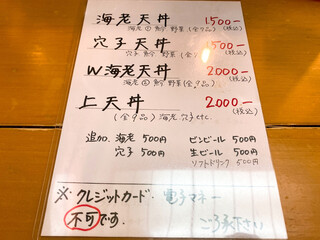 海老天丼 1,500ー
海老② 魚 野菜(全7品) (税込)
穴子天丼 1,500ー
穴子 魚 野菜(全 (税込)
W海老天丼 2,000ー
海老④ 魚 野菜(全9品) (税込)
上天丼 2,000ー
(全9品) 海老 穴子 etc. (税込)
追加 海老 500円
穴子 500円
ビンビール 500円
生ビール 500円
ソフトドリンク 500円
※クレジットカード・電子マネー
不可です。
ご了承下さい